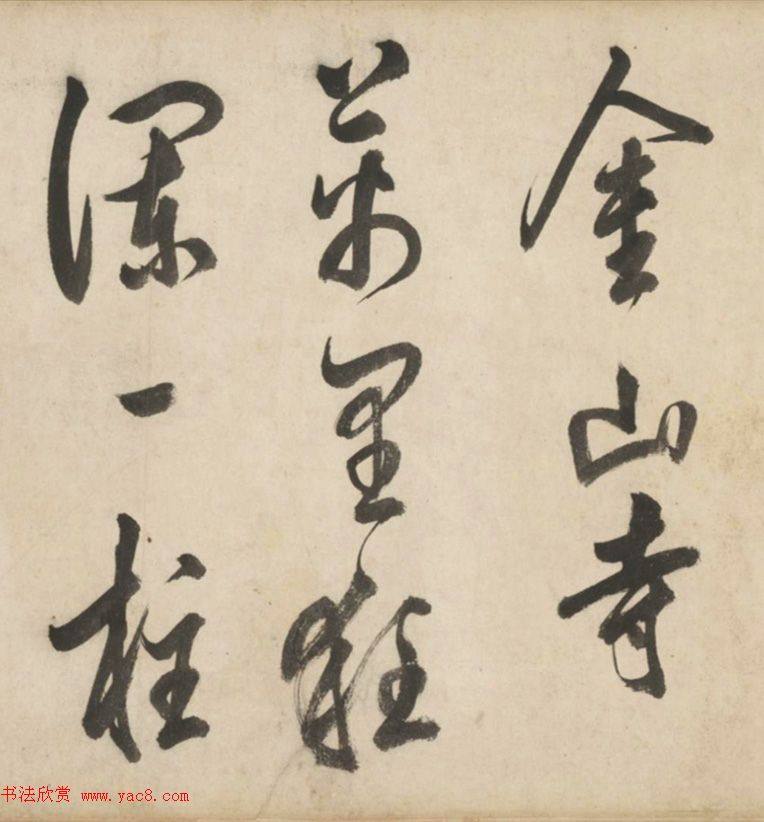 金山寺
萬里狂
瀾一柱
书法欣赏 www.yac8.com